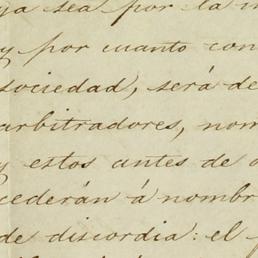 ya sea por la
y por cuanto con
sociedad, será de
arbitradores, nom
y estos antes de
cederán á nombr
de discordia: el